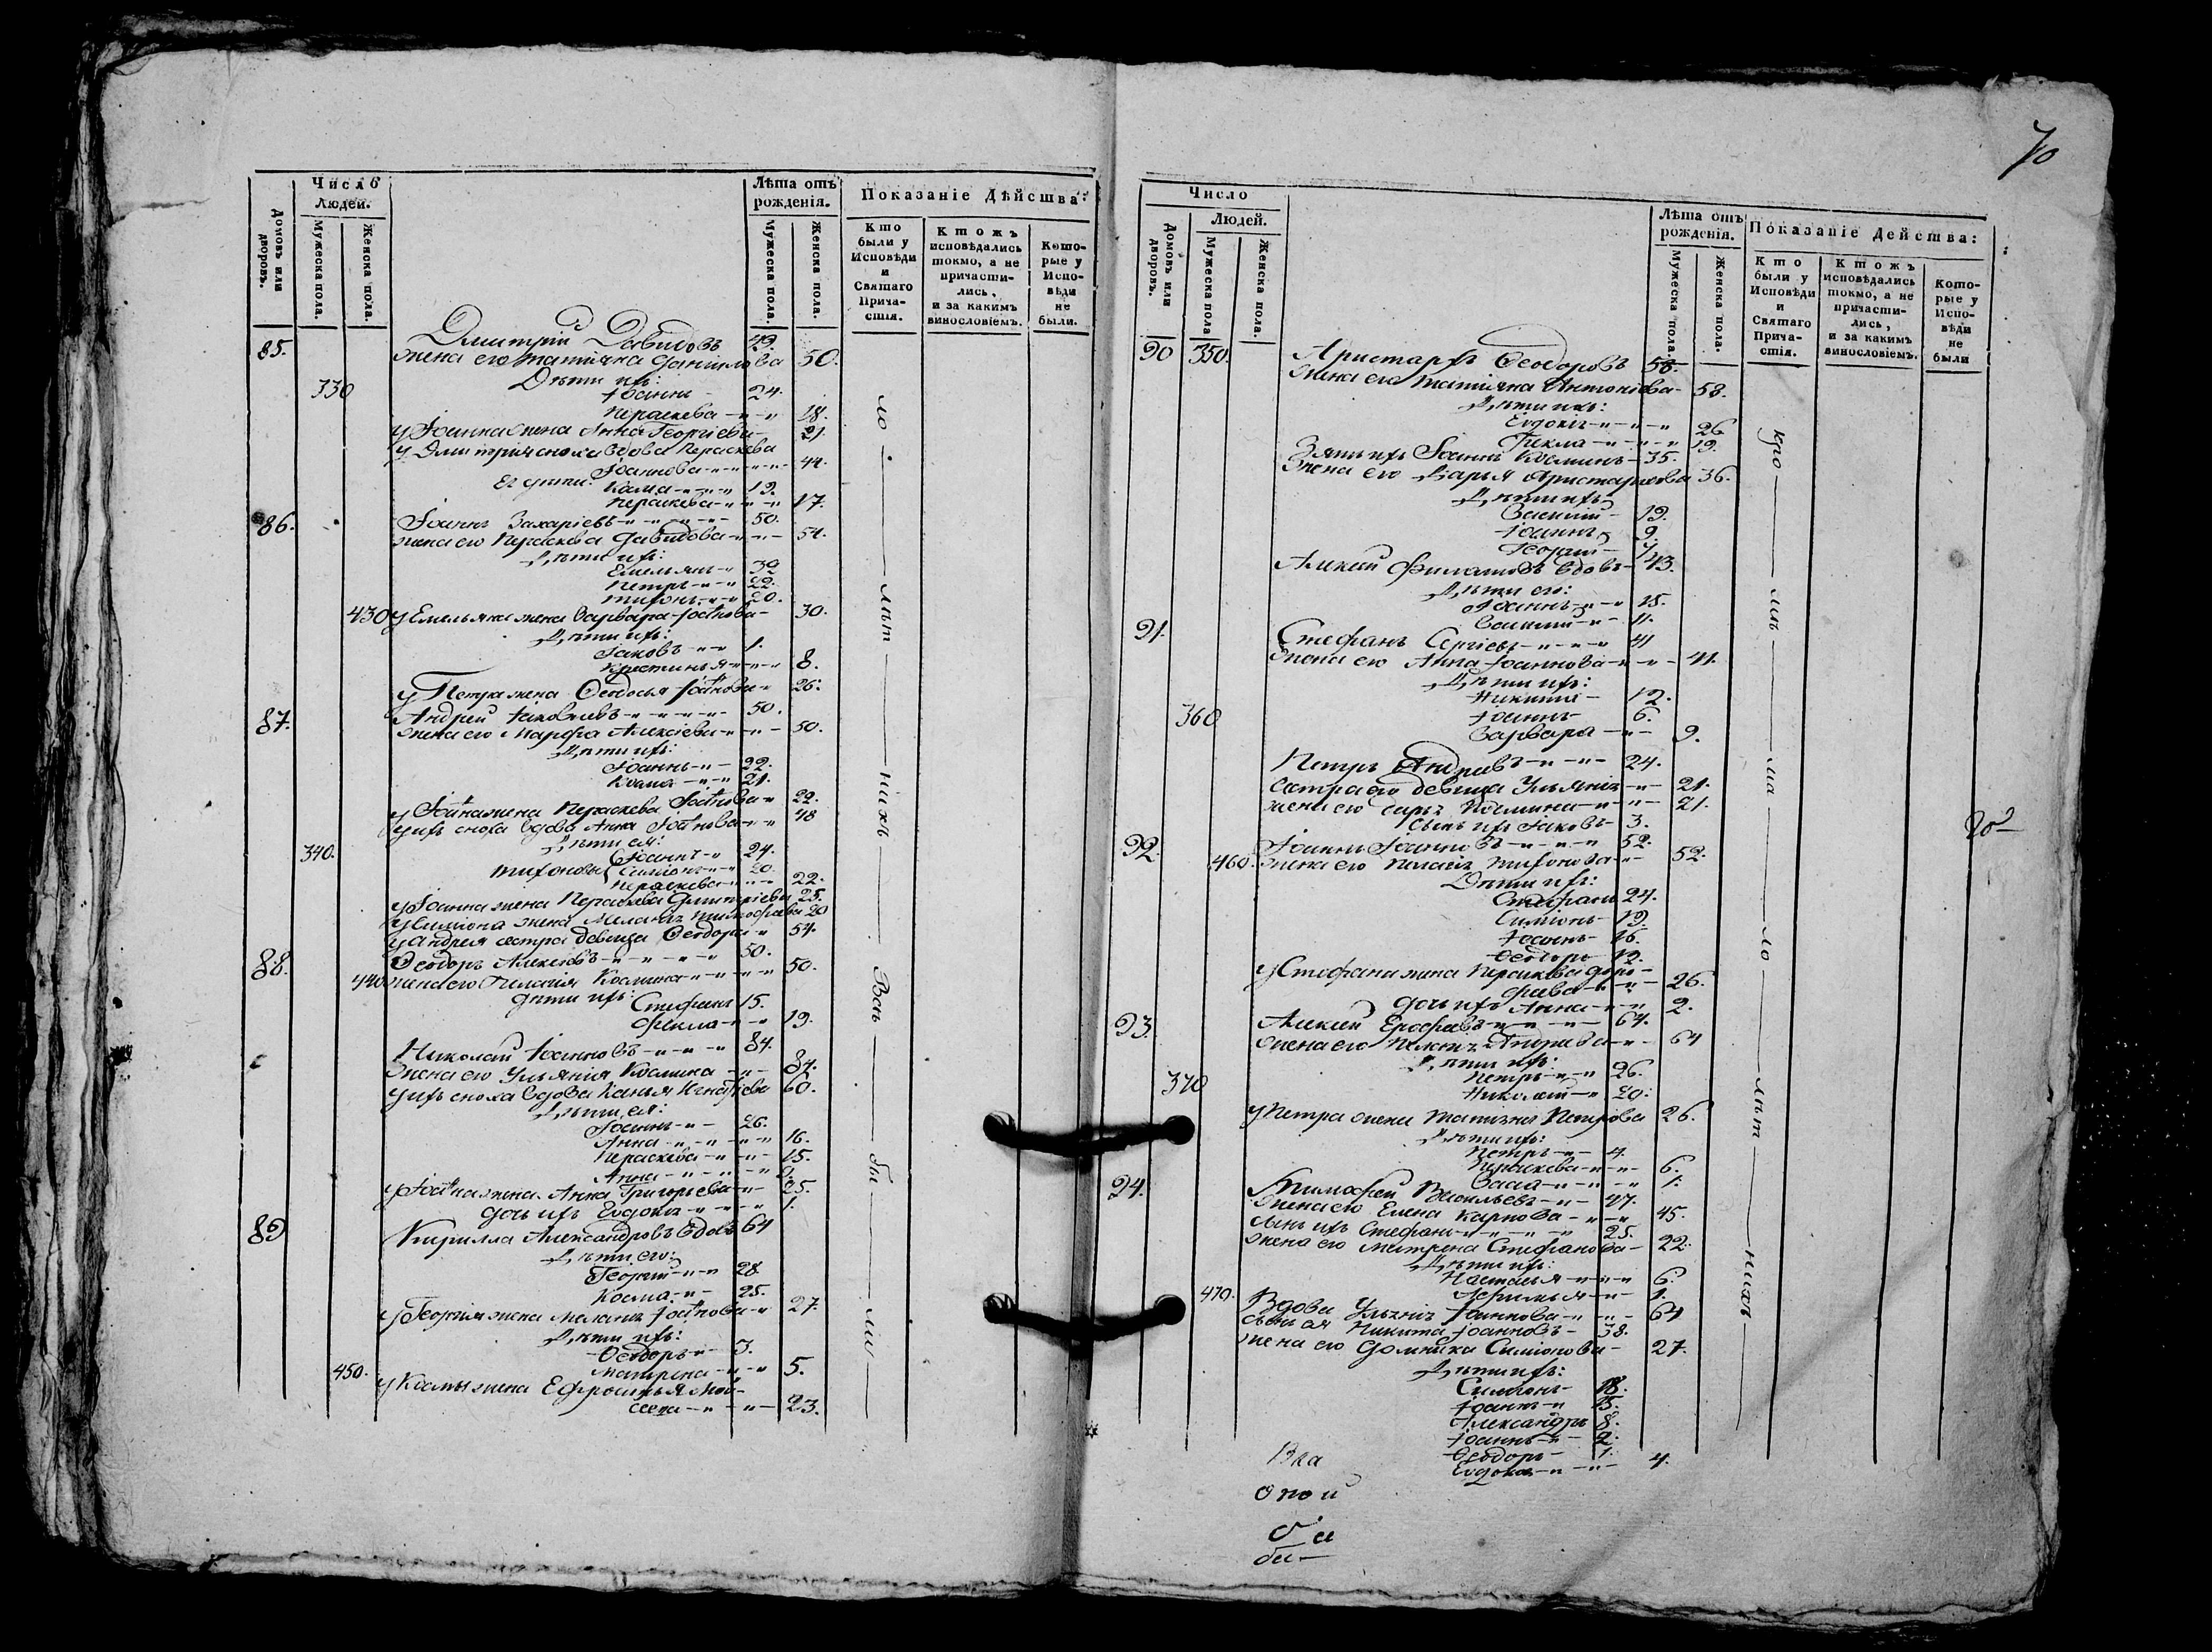 Число
Людей.
Домовъ или дворовъ.
Мужеска пола.
Женска пола.
Лѣта отъ рожденія.
Мужеска пола.
Женска пола.
Показаніе Дѣйства:
Кто были у Исповѣди и Святаго Прича-стія.
Ктожъ исповѣдались токмо, а не причасти-лись, и за какимъ винословіемъ.
Кото-рые у Испо-вѣди не были.
85. Дмитрий Давидовъ 49.
жена его Татіяна Даниилова 50.
Дѣти ихъ:
330 Іоаннъ 24.
Пераскева 18.
у Іоанна жена Анна Георгіева 21.
у Дмитрия сноха вдова Пераскева
Іоаннова 44.
Ея дѣти: Косма 19.
Пераскева 17.
86. Іоаннъ Захаріевъ 50.
жена его Пераскева Давидова 54.
Дѣти ихъ:
Емельянъ 32
Петръ 22.
Тихонъ 20.
430 у Емельяна жена Варвара Іоаннова 30.
Дѣти ихъ:
Іаковъ 1.
Кристинья 8.
у Петра жена Феодосья Іоаннова 26.
87. Андрей Іаковлевъ 50.
жена его Марфа Алексіева 50.
Дѣти ихъ:
Іоаннъ 22.
Косма 21.
у Іоанна жена Пераскева Іоаннова 22.
у ихъ сноха вдова Анна Іоаннова 48
Дѣти ея:
340. Іоаннъ 24.
Тихоновы Симіонъ 20.
Пераскева 22.
у Іоанна жена Пераскева Дмитріева 25.
у Симіона жена Меланія Тимофеева 20
у Андрея сестра девица Феодора 54.
88. Феодоръ Алексіевъ 50.
440 жена его Пелагія Космина 50.
дѣти ихъ: Стефанъ 15.
Фекла 19.
Николай Іоанновъ 84.
жена его Ульянія Космина 84.
у ихъ сноха вдова Ксенья Игнатіева 60.
Дѣти ея:
Іоаннъ 26.
Анна 16.
Пераскева 15.
Анна 9.
у Іоанна жена Анна Григорьева 25.
дочь ихъ Евдокія 1.
89 Кирилла Александровъ вдовъ 64
Дѣти его:
Георгій 28
Косма 25.
у Георгія жена Меланія Іоаннова 27.
Дѣти ихъ:
Феодоръ 3.
450. Матрена 5.
у Космы жена Ефросинья Мои-
сеева 23.
Всѣ бы ли
70
Число
Людей.
Домовъ или дворовъ.
Мужеска пола
Женска пола.
Лѣта отъ рожденія.
Мужеска пола.
Женска пола.
Показаніе Действа:
Кто были у Исповѣди и Святаго Прича-стія.
Ктожъ исповѣдались токмо, а не причасти-лись, и за какимъ винословіемъ.
Кото-рые у Испо-вѣди не были
90 350. Аристархъ Феодоровъ 58.
жена его Татіяна Антоніева 58.
Дѣти ихъ:
Евдокія 26
Фекла 19.
Зять ихъ Іоаннъ Косминъ 35.
жена его Дарья Аристархова 36.
Дѣти ихъ:
Василий 19.
Іоаннъ 9.
Георгий 7.
Алексий Филатовъ вдовъ 43.
Дѣти его:
Іоаннъ 15.
Василий 11.
91. Стефанъ Сергіевъ 41
жена его Анна Іоаннова 41.
Дѣти ихъ:
Никита 12.
360 Іоаннъ 6.
Варвара 9.
Петръ Андреевъ 24.
сестра его девица Ульянія 21.
жена его Сарра Космина 21.
Сынъ ихъ Іаковъ 3.
92. Іоаннъ Іоанновъ 52.
460. жена его Пелагія Тихонова 52.
Дѣти ихъ:
Стефанъ 24.
Симіонъ 19.
Іоаннъ 16.
Феодоръ 12.
у Стефана жена Пераскева Доро-
феева 26.
дочь ихъ Анна 2.
93. Алексий Ерофеевъ 64.
жена его Пелагія 64
Дѣти ихъ:
370 Петръ 26.
Николай 20.
у Петра жена Татіяна Петрова 26.
Дѣти ихъ:
Петръ 4.
Пераскева 6.
Васса 1.
94. Тимофей Васильевъ 47.
жена его Елена Карпова 45.
сынъ ихъ Стефанъ 25.
жена его Матрена Стефанова 22.
Дѣти ихъ:
Настасья 6.
470. 1.
Вдова Ульянія Іоаннова 64
сынъ ея Никита Іоанновъ 38.
жена его Домника Симіонова 27.
Дѣти ихъ:
Симіонъ 18.
Іоаннъ 15.
Александръ 8.
Іоаннъ 2.
Феодоръ 1.
Евдокія 4.